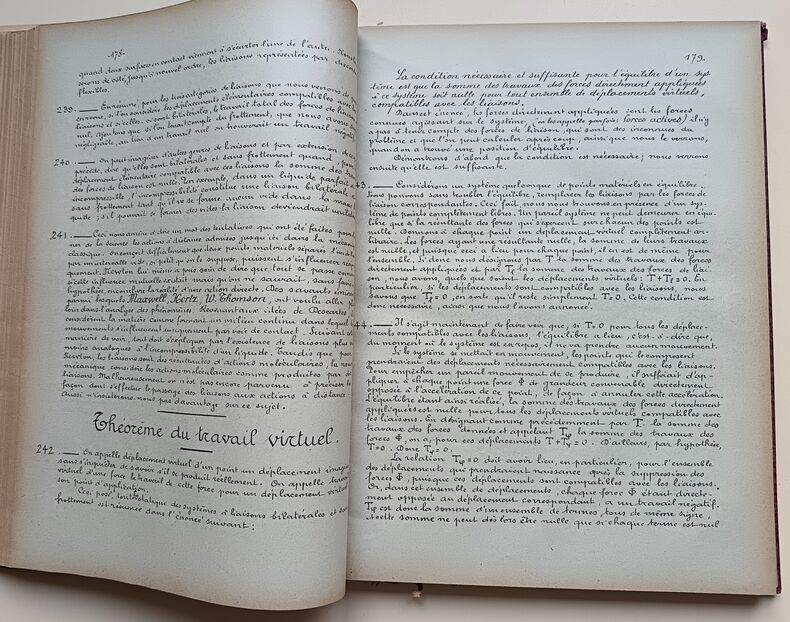 178.
quand deux surfaces en contact viennent à s'écarter l'une de l'autre.
verons de côté, jusqu'à nouvel ordre, les liaisons représentées par
flexibles.
239. En résumé, pour les trois catégories de liaison que nous venons de
en revue, si l'on considère les déplacements élémentaires compatibles avec
liaisons et si celles-ci sont bilatérales, le travail total des forces de liaison
nul, à moins que si l'on tenait compte du frottement, que nous avons
négligeable, au lieu d'un travail nul on trouverait un travail négatif
240. On peut imaginer d'autres genres de liaisons et par extension de ce
précède, dire qu'elles sont bilatérales et sans frottement quand, pour
déplacement élémentaire compatible avec ces liaisons la somme des
des forces de liaison est nulle. Par exemple, dans un liquide parfait et
incompressible, l'incompressibilité constitue une liaison bilatérale
sans frottement tant qu'il ne se forme aucun vide dans la masse
quide; s'il pouvait se former des vides la liaison deviendrait unilatérale
241. Ceci nous amène à dire un mot des tentatives qui ont été faites pour
nir de la science les actions à distance admises jusqu'ici dans la mécanique
classique. On conçoit difficilement que deux points matériels séparés l'un de
par un intervalle vide, si petit qu'on le suppose, puissent s'influencer
quement. Newton lui même a pris soin de dire que tout se passe comme
si cette influence mutuelle existait mais qu'on ne saurait, sans faire
hypothèse, envisager la réalité d'une action directe. Des savants
parmi lesquels Maxwell, Hertz, W. Thomson, ont voulu aller plus
loin dans l'analyse des phénomènes. Revenant aux idées de Descartes
considèrent la matière comme formant un milieu continu dans lequel
mouvements s'influencent uniquement par voie de contact. Suivant cette
manière de voir, tout doit s'expliquer par l'existence de liaisons plus
moins analogues à l'incompressibilité d'un liquide. Tandis que pour
Newton, les liaisons sont des resultats d'actions moléculaires, la
mécanique considère les actions moléculaires comme produites par des
liaisons. Malheureusement on n'est pas encore parvenu à préciser
façon dont s'effectue le passage des liaisons aux actions à distance
Aussi n'insisterons nous pas davantage sur ce sujet.
Théorème du travail virtuel.
242. On appelle déplacement virtuel d'un point un déplacement
sans s'inquiéter de savoir s'il se produit réellement. On appelle travail
virtuel d'une force le travail de cette force pour un déplacement virtuel
son point d'application.
Ceci posé, toute la statique des systèmes à liaisons bilatérales et sans
frottement est résumée dans l'énoncé suivant:
179.
La condition nécessaire et suffisante pour l'équilibre d'un sys
tème est que la somme des travaux des forces directement appliquées
à ce système soit nulle pour tout ensemble de déplacements virtuels,
compatibles avec les liaisons.
Dans cet énoncé, les forces directement appliquées sont les forces
connues agissant sur le système, (on les appelle parfois: forces actives); il n'y
a pas à tenir compte des forces de liaison, qui sont des inconnues du
problème et que l'on peut calculer après coup, ainsi que nous le verrons,
quand on a trouvé une position d'équilibre.
Démontrons d'abord que la condition est nécessaire; nous verrons
ensuite qu'elle est suffisante.
43. Considérons un système quelconque de points matériels en équilibre.
Nous pouvons, sans troubler l'équilibre, remplacer les liaisons par les forces de
liaison correspondantes. Ceci fait, nous nous trouvons en présence d'un sys-
tème de points complètement libres. Un pareil système ne peut demeurer en équi-
libre que si la résultante des forces qui s'exercent sur chacun des points est
nulle. Donnons à chaque point un déplacement virtuel complètement ar-
bitraire; les forces ayant une résultante nulle, la somme de leurs travaux
est nulle et, puisque ceci a lieu pour chaque point, il en est de même pour
l'ensemble. Si donc nous désignons par T la somme des travaux des forces
directement appliquées et par Tℓ la somme des travaux des forces de liai-
son, nous avons, quels que soient les déplacements virtuels: T+Tℓ=0. En
particulier, si les déplacements sont compatibles avec les liaisons, nous
savons que Tℓ=0, en sorte qu'il reste simplement T=0. Cette condition est
donc nécessaire, ainsi que nous l'avons annoncé.
44. Il s'agit maintenant de faire voir que, si T=0 pour tous les déplace-
ments compatibles avec les liaisons, l'équilibre a lieu, c'est-à-dire que,
du moment où le système est en repos, il ne va prendre aucun mouvement.
Si le système se mettait en mouvement, les points qui le composent
prendraient des déplacements nécessairement compatibles avec les liaisons.
Pour empêcher un pareil mouvement de se produire, il suffirait d'ap-
pliquer, à chaque point une force Φ de grandeur convenable directement
opposée à l'accélération de ce point, de façon à annuler cette accélération.
L'équilibre étant ainsi réalisé, la somme des travaux des forces directement
appliquées est nulle pour tous les déplacements virtuels compatibles avec
les liaisons. En désignant comme précédemment par T la somme des
travaux des forces données et appelant Tφ la somme des travaux des
forces Φ, on a, pour ces déplacements T+Tφ=0. D'ailleurs, par hypothèse,
T=0. Donc Tφ=0.
La relation Tφ=0 doit avoir lieu, en particulier, pour l'ensemble
des déplacements qui prendraient naissance après la suppression des
forces Φ, puisque ces déplacements sont compatibles avec les liaisons.
Or, dans cet ensemble de déplacements, chaque force Φ étant directe-
ment opposée au déplacement correspondant, a un travail négatif.
Tφ est donc la somme d'un ensemble de termes, tous de même signe,
et cette somme ne peut dès lors être nulle que si chaque terme est nul